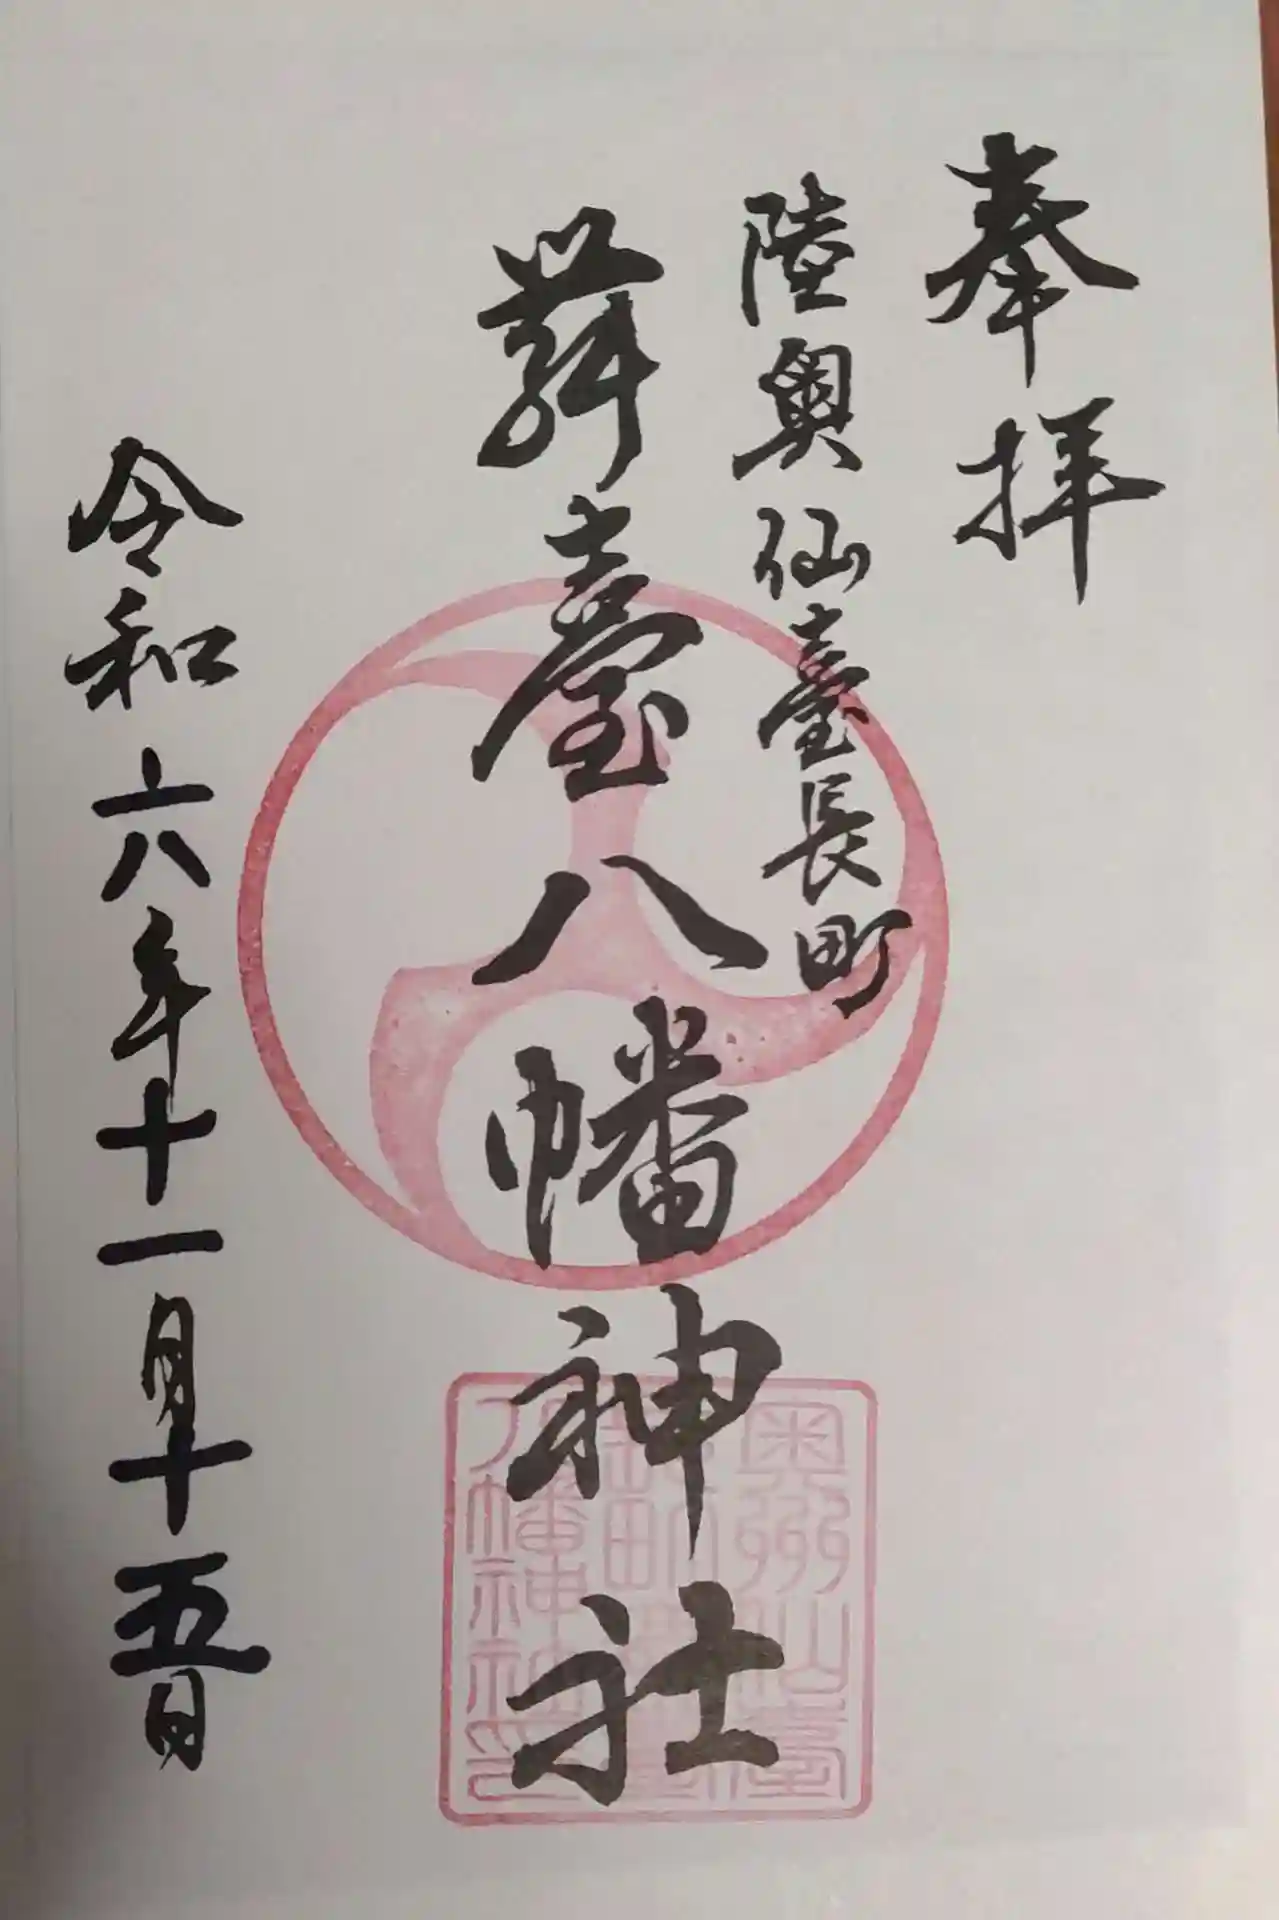 奉拝
陸奥仙臺長町
舞臺八幡神社
令和六年十一月十五日
奥州仙臺
長町舞臺
八幡神社印